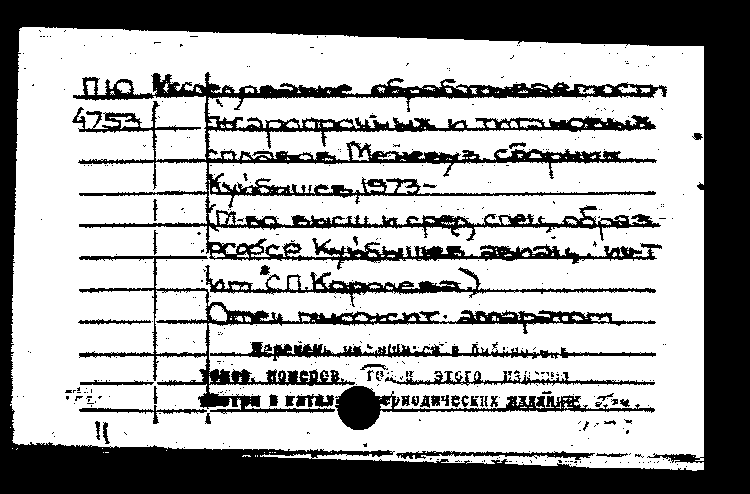 П10 Исследование обрабатываемости
4753 жаропрочных и титановых
сплавов Межвуз. сборник
Куйбышев, 1973-
(М-во высш и сред, спец, образ.
РСФСР Куйбышев. авиац. ин-т
им С.П. Королева.)
Отеч. аппаратом.
Перечень имеющихся в библиотеке
томов, номеров, годов этого издания
смотри в периодических изданий.
11